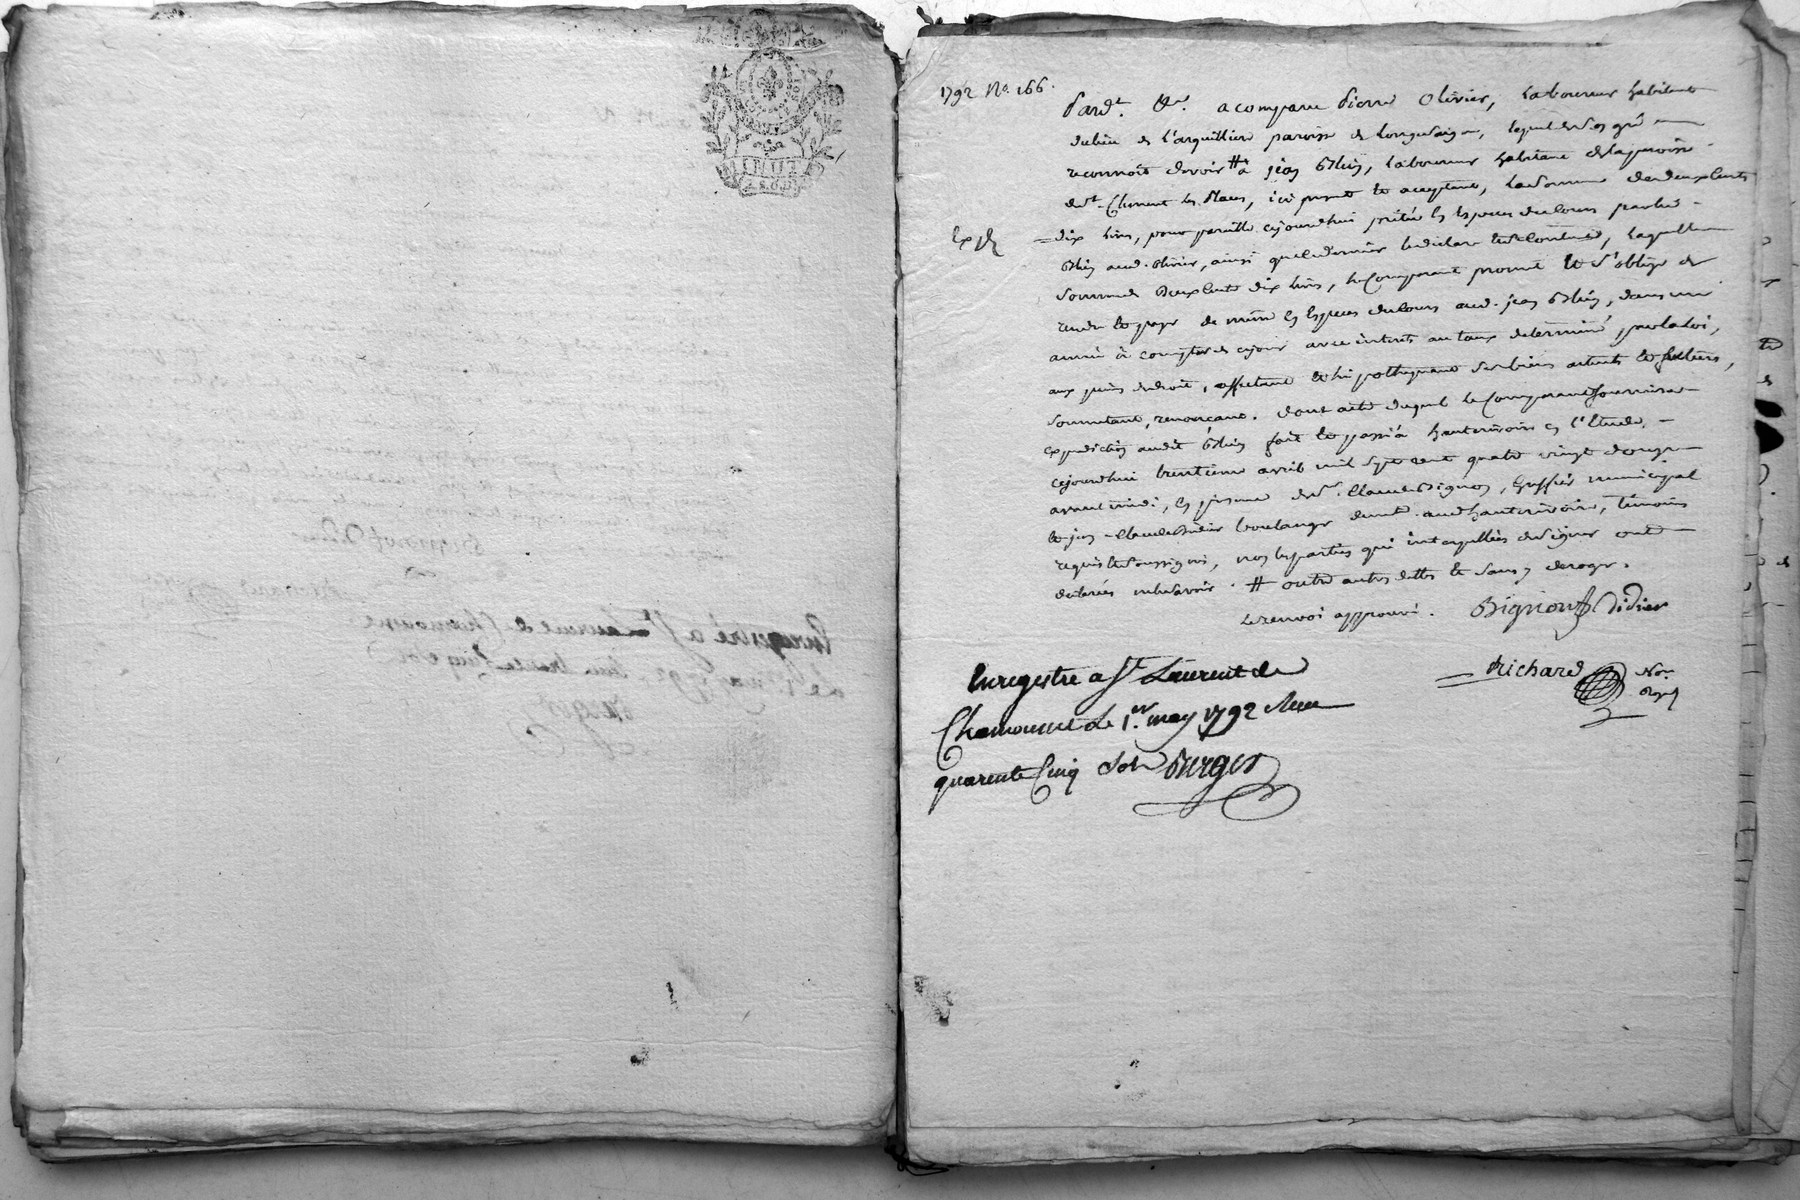 1792 No. 166.
Pard.t &a. a comparu pierre olivier, laboureur habitant
du lieu de l'arguilliere paroisse de Longessaigne, lequel de son gré
reconnoit devoir # à jean Blein, laboureur habitant de la paroisse
de St. Clement les places, ici present et acceptant, la somme de deux cents
Exp.
= dix livres, pour pareille cejourd'hui pretée en especes de cours par led.
Blein aud. olivier, ainsi que ce dernier le declare et s'en contente, laquelle
somme de deux cents dix livres, le comparant promet et s'oblige de
rendre et payer de même en especes de cours aud. jean Blein, dans une
année à compter de cejour avec interets au taux determiné par la loi,
aux peines de droit, affectant et hipothequant ses biens actuels et futurs,
soumettant, renonçant. dont acte duquel le comparant fournira
expedition audit Blein fait et passé à hauterivoire en l'Etude,
cejourd'hui trentieme avril mil sept cent quatre vingt douze
avant midi, en presence de Sr. Claude Bignon, greffier municipal
et jean-claude Didier boulanger demt. aud. hauterivoire, temoins
requis et soussignés, non les parties qui interpellées de signer ont
declarées ne le savoir. # outre autres dettes et sans y deroger.
le renvoi approuvé. Bignon Didier
Richard No.re Royal
Enregistre a St Laurent de
Chamousset le 1.er may 1792 Reçu
quarente cinq sols Burger